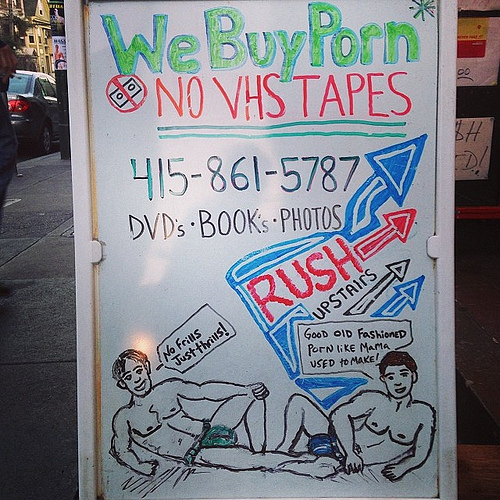 We Buy Porn
NO VHS TAPES
415-861-5787
DVD's · BOOK's · PHOTOS
RUSH
UPSTAIRS
No Frills
Just thrills!
GOOD OLD FASHIONED
PORN LIKE MAMA
USED TO MAKE!